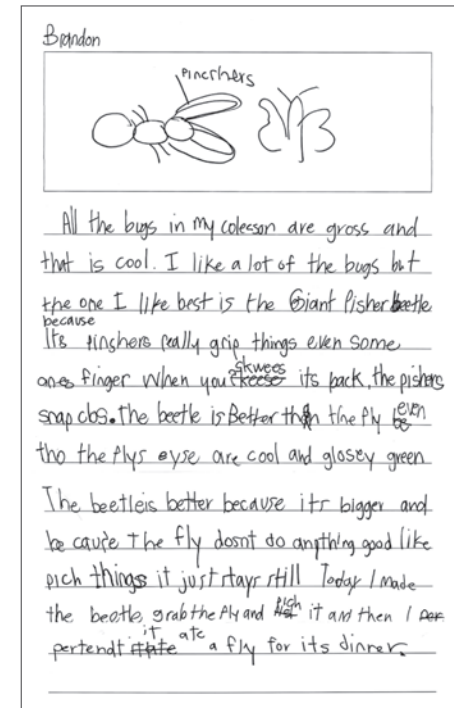 Brandon
pincrhers
All the bugs in my colecson are gross and
that is cool. I like a lot of the bugs but
the one I like best is the Giant Pisher beetle
because
Its pinshers really grip things even some
ones finger when you skwees its back, the pishers
snap cbs. the beetle is Better then the fly even
tho the flys eyse are cool and glosey green
The beetle is better because its bigger and
be cause The fly dosnt do anything good like
pich things it just stays still Today I made
the beatle, grab the fly and pich it and then I
pertendt it ate a fly for its dinner.